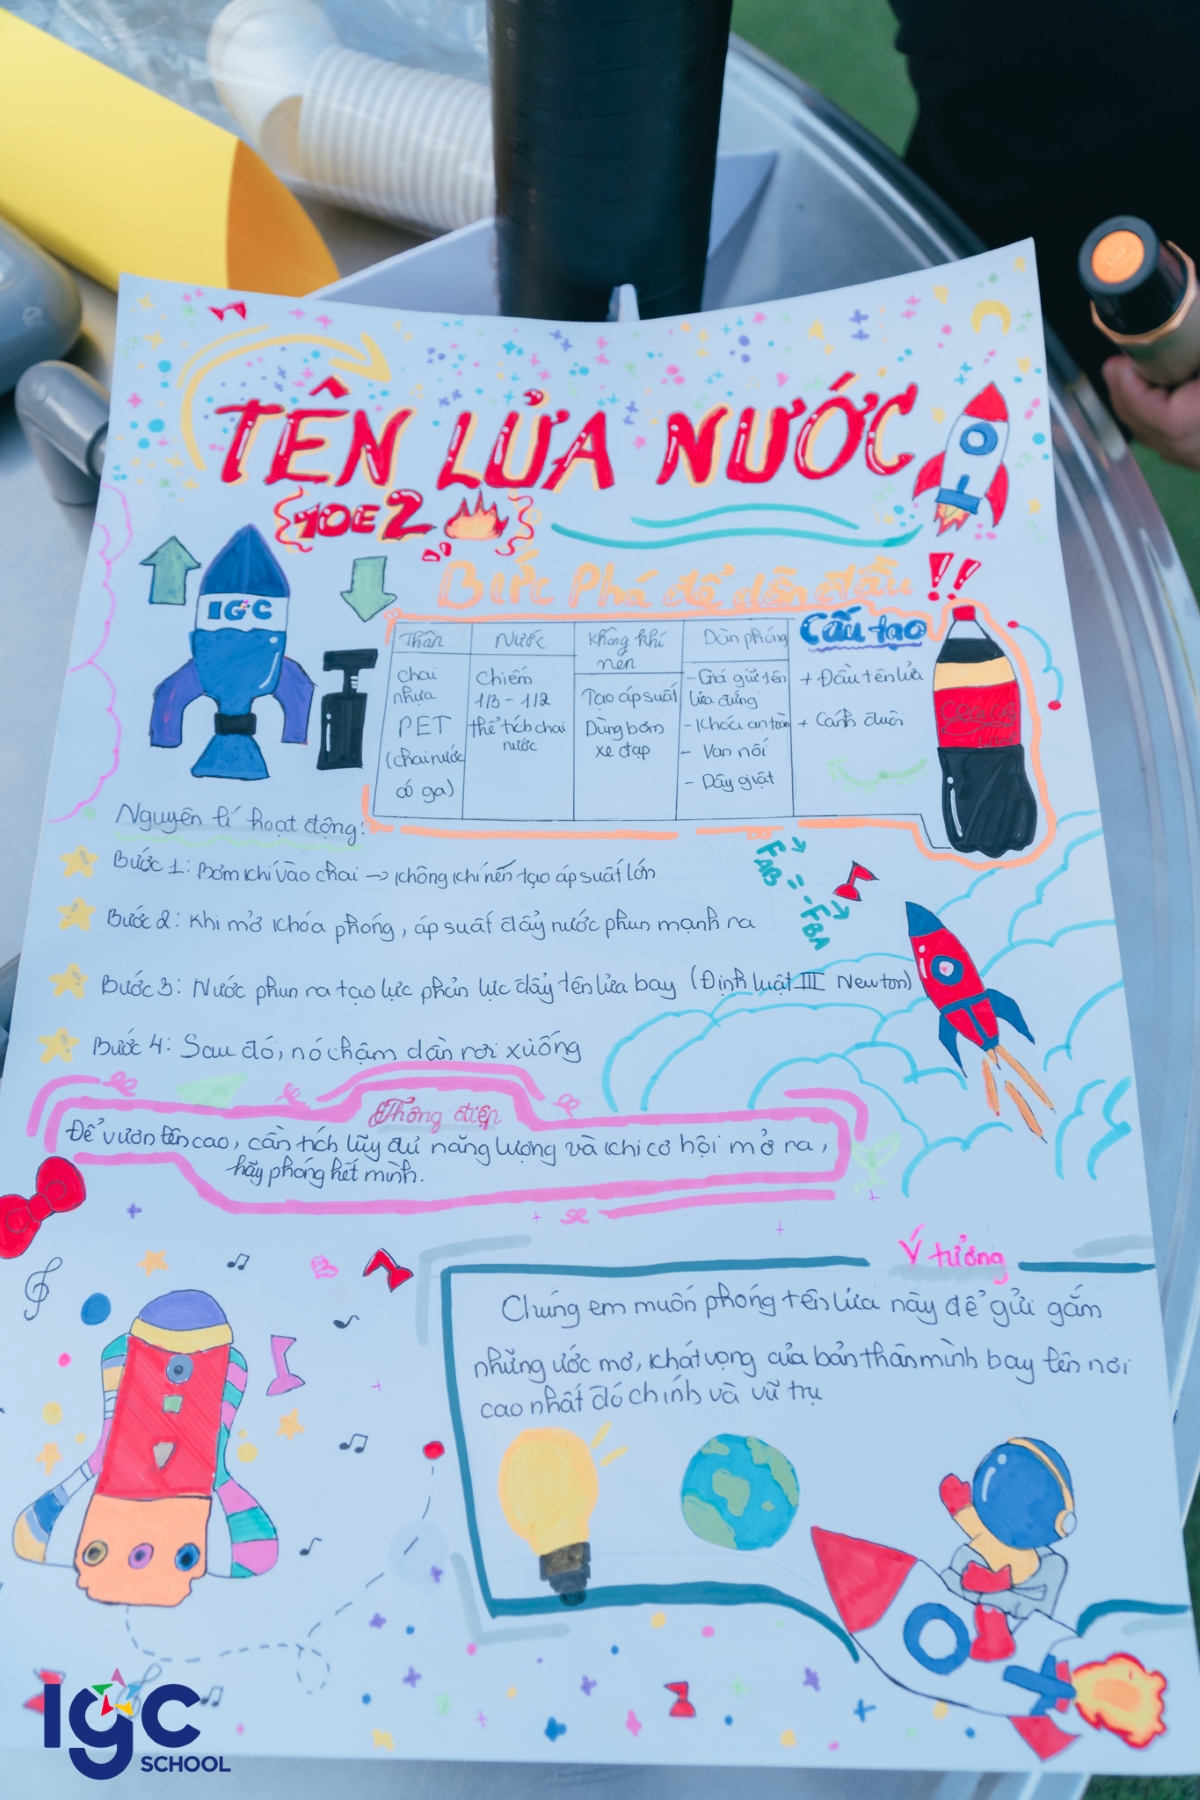 TÊN LỬA NƯỚC
10E2
Bức Phá để dẫn đầu !!
IGC
Cấu tạo
Thân
chai
nhựa
PET
(chai nước
có ga)
Nước
Chiếm
1/3 - 1/2
thể tích chai
nước
Không khí
nén
Tạo áp suất
Dùng bơm
xe đạp
Dàn phóng
- Giá giữ tên
lửa đứng
- Khóa an toàn
- Van nối
- Dây giật
+ Đầu tên lửa
+ Cánh đuôi
Nguyên lí hoạt động:
Bước 1: Bơm khí vào chai → không khí nén tạo áp suất lớn
Bước 2: Khi mở khóa phóng, áp suất đẩy nước phun mạnh ra
Bước 3: Nước phun ra tạo lực phản lực đẩy tên lửa bay (Định luật III Newton)
Bước 4: Sau đó, nó chậm dần rơi xuống
FAB = -FBA
Thông điệp
Để vươn lên cao, cần tích lũy đủ năng lượng và khi cơ hội mở ra,
hãy phóng hết mình.
Ý tưởng
Chúng em muốn phóng tên lửa này để gửi gắm
những ước mơ, khát vọng của bản thân mình bay lên nơi
cao nhất đó chính và vũ trụ
IGC
SCHOOL